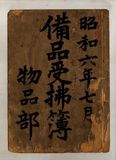 昭和六年七月
備品受拂簿
物品部